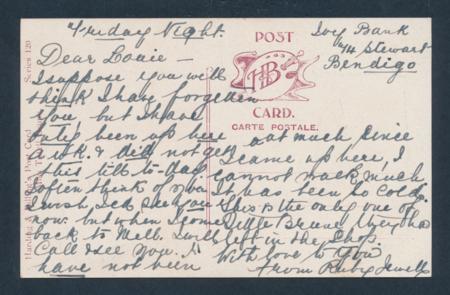 Friday Night.
Ivy Bank
74 Stewart
Bendigo
Dear Louie —
I suppose you will
think I have forgotten
you, but I have
only been up here
a wk. & did not get
this till to-day
I often think of you
I wish I could
now. but when I come
back to Melb. I will
Call & see you. I
have not been
out much since
I came up here, I
cannot walk much
It was been so cold.
This is the only one of
Little Bruce they had
left in the shop.
With love to You
from Ruby Jewell
POST
HB
CARD.
CARTE POSTALE.
Series 120
Post Card